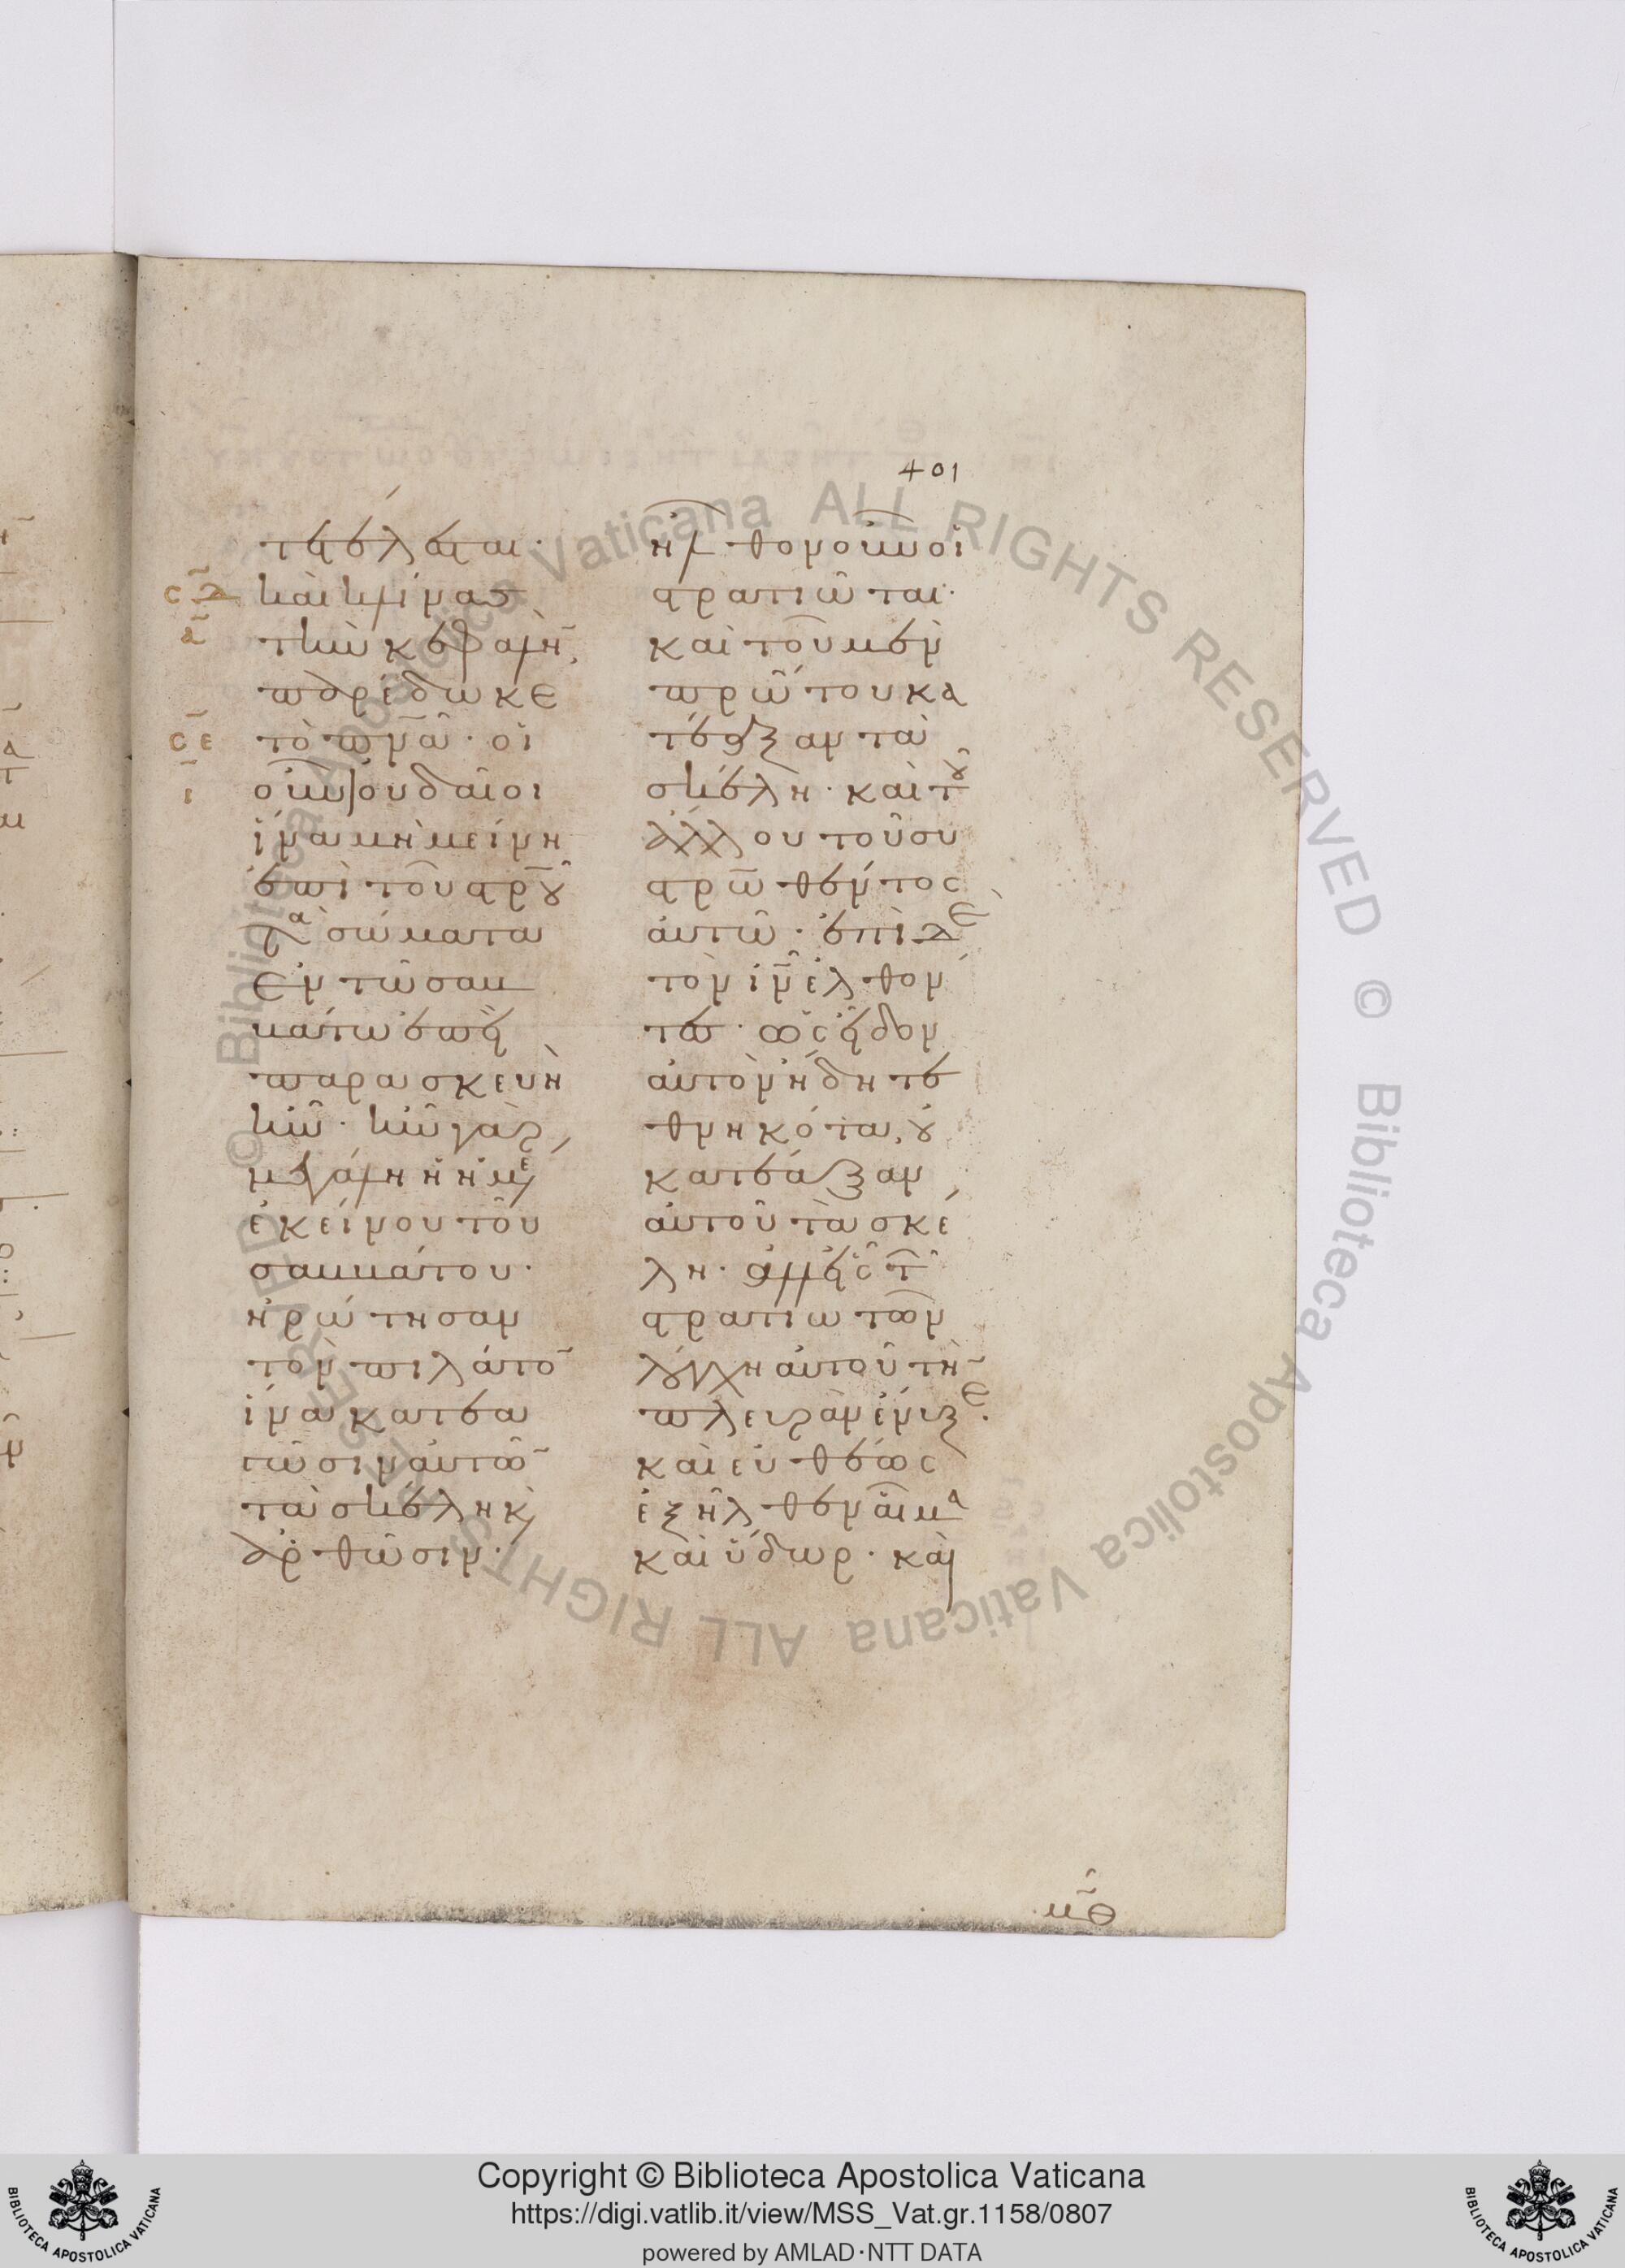 401
τετέλεσται·
σδ
καὶ κλίνας
δ
τὴν κεφαλὴν,
παρέδωκε
σε
τὸ πνα· οἱ
ι
οὖν ἰουδαῖοι
ἵνα μὴ μείνη
ἐπὶ τοῦ στρου
τὰ σώματα
ἐν τῶ σαβ
βάτω ἐπεὶ
παρασκευὴ
ἦν· ἦν γὰρ
μεγάλη ἡ ἡμέ
ἐκείνου τοῦ
σαββάτου·
ἠρώτησαν
τὸν πιλάτον
ἵνα κατεα
γῶσιν αὐτῶν
τὰ σκέλη κ(αὶ)
ἀρθῶσιν·
ἦλθον οὖν οἱ
στρατιῶται·
καὶ τοῦ μὲν
πρώτου κα
τέαξαν τὰ
σκέλη· καὶ τοῦ
ἄλλου τοῦ συ
στρωθέντος
αὐτῶ· ἐπὶ δὲ
τὸν ιν ἐλθόν
τες· ὡς εἶδον
αὐτὸν ἤδη τε
θνηκότα, οὐ
κατέαξαν
αὐτοῦ τὰ σκέ
λη· ἀλλ' εἷς τῶν
στρατιωτῶν
λόγχη αὐτοῦ τὴν
πλευρὰν ἔνυξε·
καὶ εὐθέως
ἐξῆλθεν αἷμα
καὶ ὕδωρ· καὶ
μθ
Copyright © Biblioteca Apostolica Vaticana
https://digi.vatlib.it/view/MSS_Vat.gr.1158/0807
powered by AMLAD·NTT DATA
BIBLIOTECA APOSTOLICA VATICANA
BIBLIOTECA APOSTOLICA VATICANA
© Biblioteca Apostolica Vaticana ALL RIGHTS RESERVED © Biblioteca Apostolica Vaticana ALL RIGHTS RESERVED